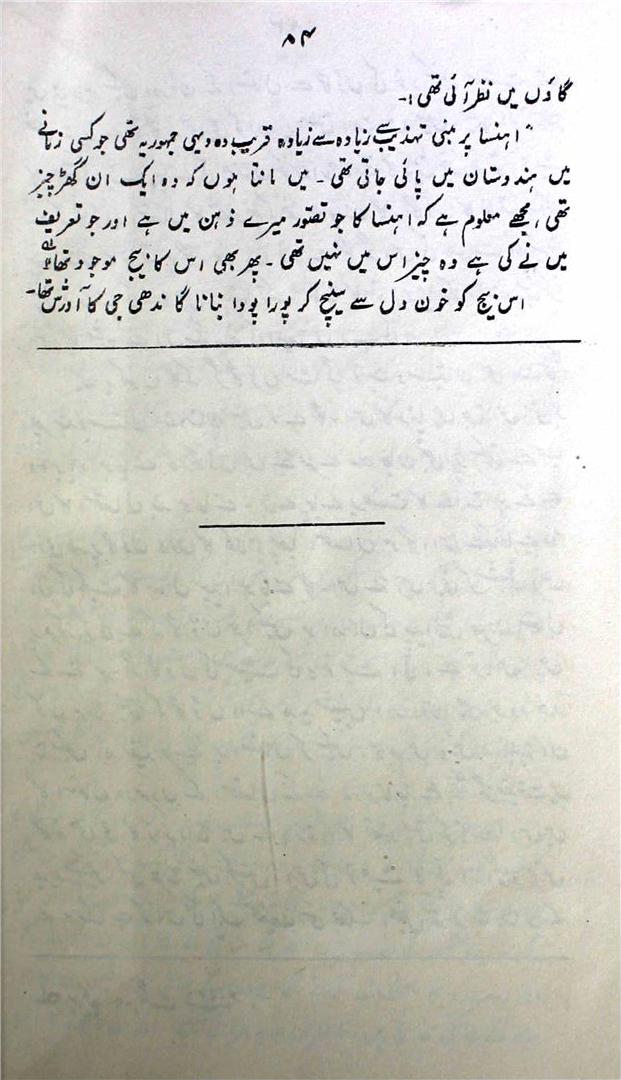 ۵۴
گاؤں میں نظر آئی تھی:۔
"اہنسا پر مبنی تہذیب سے زیادہ سے زیادہ قریب وہ دیہی جمہوریہ تھی جو کسی زمانے
میں ہندوستان میں پائی جاتی تھی۔ میں مانتا ہوں کہ وہ ایک ان گھڑ چیز
تھی، مجھے معلوم ہے کہ اہنسا کا جو تصور میرے ذہن میں ہے اور جو تعریف
میں نے کی ہے وہ چیز اس میں نہیں تھی۔ پھر بھی اس کا بیج موجود تھا"
اس بیج کو خون دل سے سینچ کر پورا پودا بنانا گاندھی جی کا آدرش تھا۔